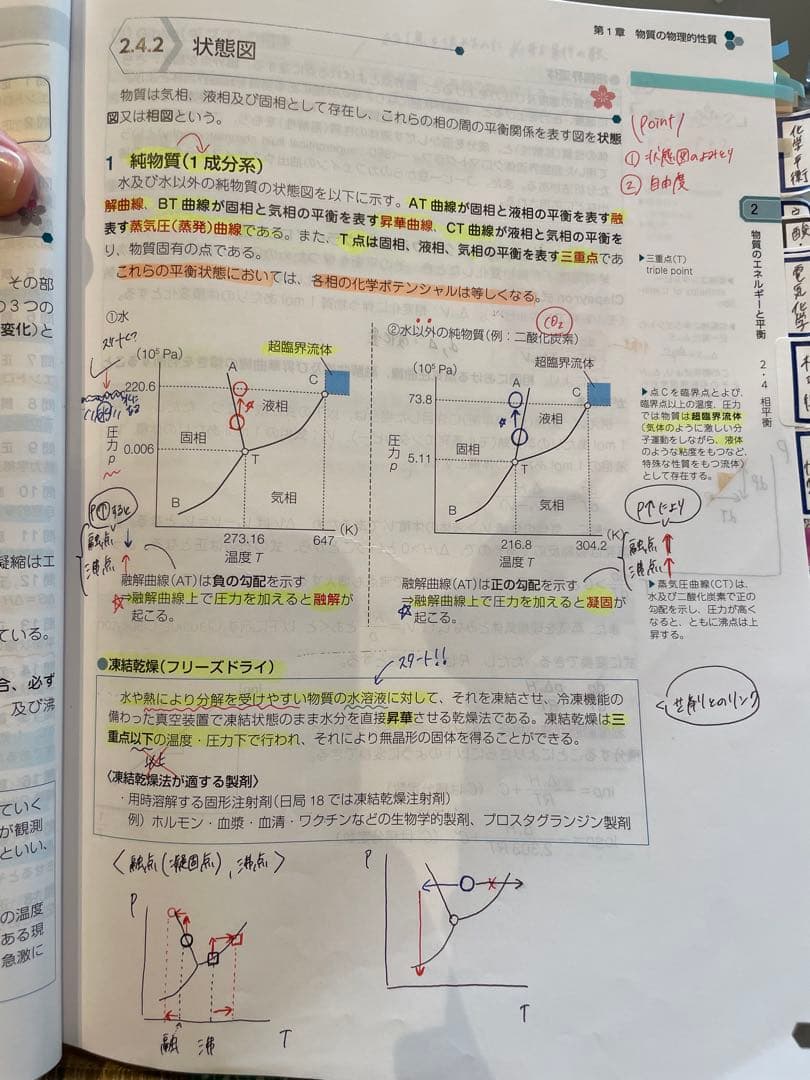 第1章 物質の物理的性質
2.4.2 状態図
物質は気相、液相及び固相として存在し、これらの相の間の平衡関係を表す図を状態
図又は相図という。
1 純物質(1成分系)
水及び水以外の純物質の状態図を以下に示す。AT曲線が固相と液相の平衡を表す融
解曲線、BT曲線が固相と気相の平衡を表す昇華曲線、CT曲線が液相と気相の平衡を
表す蒸気圧(蒸発)曲線である。また、T点は固相、液相、気相の平衡を表す三重点であ
り、物質固有の点である。
これらの平衡状態においては、各相の化学ポテンシャルは等しくなる。
(point)
① 状態図のよみとり
② 自由度
2
物質のエネルギーと平衡
2・4 相平衡
▶三重点(T)
triple point
▶点Cを臨界点とよび、
臨界点以上の温度、圧力
では物質は超臨界流体
(気体のように激しい分
子運動をしながら、液体
のような粘度をもつなど、
特殊な性質をもつ流体)
として存在する。
①水
(10⁵Pa)
超臨界流体
220.6
0.006
圧力 p
A
B
C
T
固相
液相
気相
273.16
647
(K)
温度 T
融解曲線(AT)は負の勾配を示す
⇒融解曲線上で圧力を加えると融解が
起こる。
P↑すると
融点 ↓
沸点 ↑
②水以外の純物質(例:二酸化炭素)
CO₂
(10⁵Pa)
超臨界流体
73.8
5.11
圧力 p
A
B
C
T
固相
液相
気相
216.8
304.2
(K)
温度 T
融解曲線(AT)は正の勾配を示す
⇒融解曲線上で圧力を加えると凝固が
起こる。
P↑により
融点 ↑
沸点 ↑
▶蒸気圧曲線(CT)は、
水及び二酸化炭素で正の
勾配を示し、圧力が高く
なると、ともに沸点は上
昇する。
●凍結乾燥(フリーズドライ)
スタート!!
水や熱により分解を受けやすい物質の水溶液に対して、それを凍結させ、冷凍機能の
備わった真空装置で凍結状態のまま水分を直接昇華させる乾燥法である。凍結乾燥は三
重点以下の温度・圧力下で行われ、それにより無晶形の固体を得ることができる。
〈凍結乾燥法が適する製剤〉
・用時溶解する固形注射剤(日局18では凍結乾燥注射剤)
例)ホルモン・血漿・血清・ワクチンなどの生物学的製剤、プロスタグランジン製剤
<融点(凝固点), 沸点>
P
T
融
沸
P
T
その部
の3つの
変化)と
凝縮はエ
ている。
合、必ず
及び沸
ていく
が観測
といい、
の温度
ある現
急激に
化学平衡
電気化学